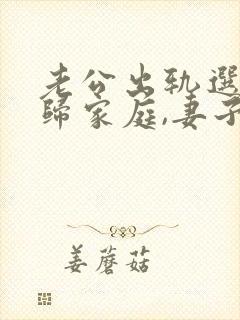 老公出轨选
归家庭,妻子
姜蘑菇